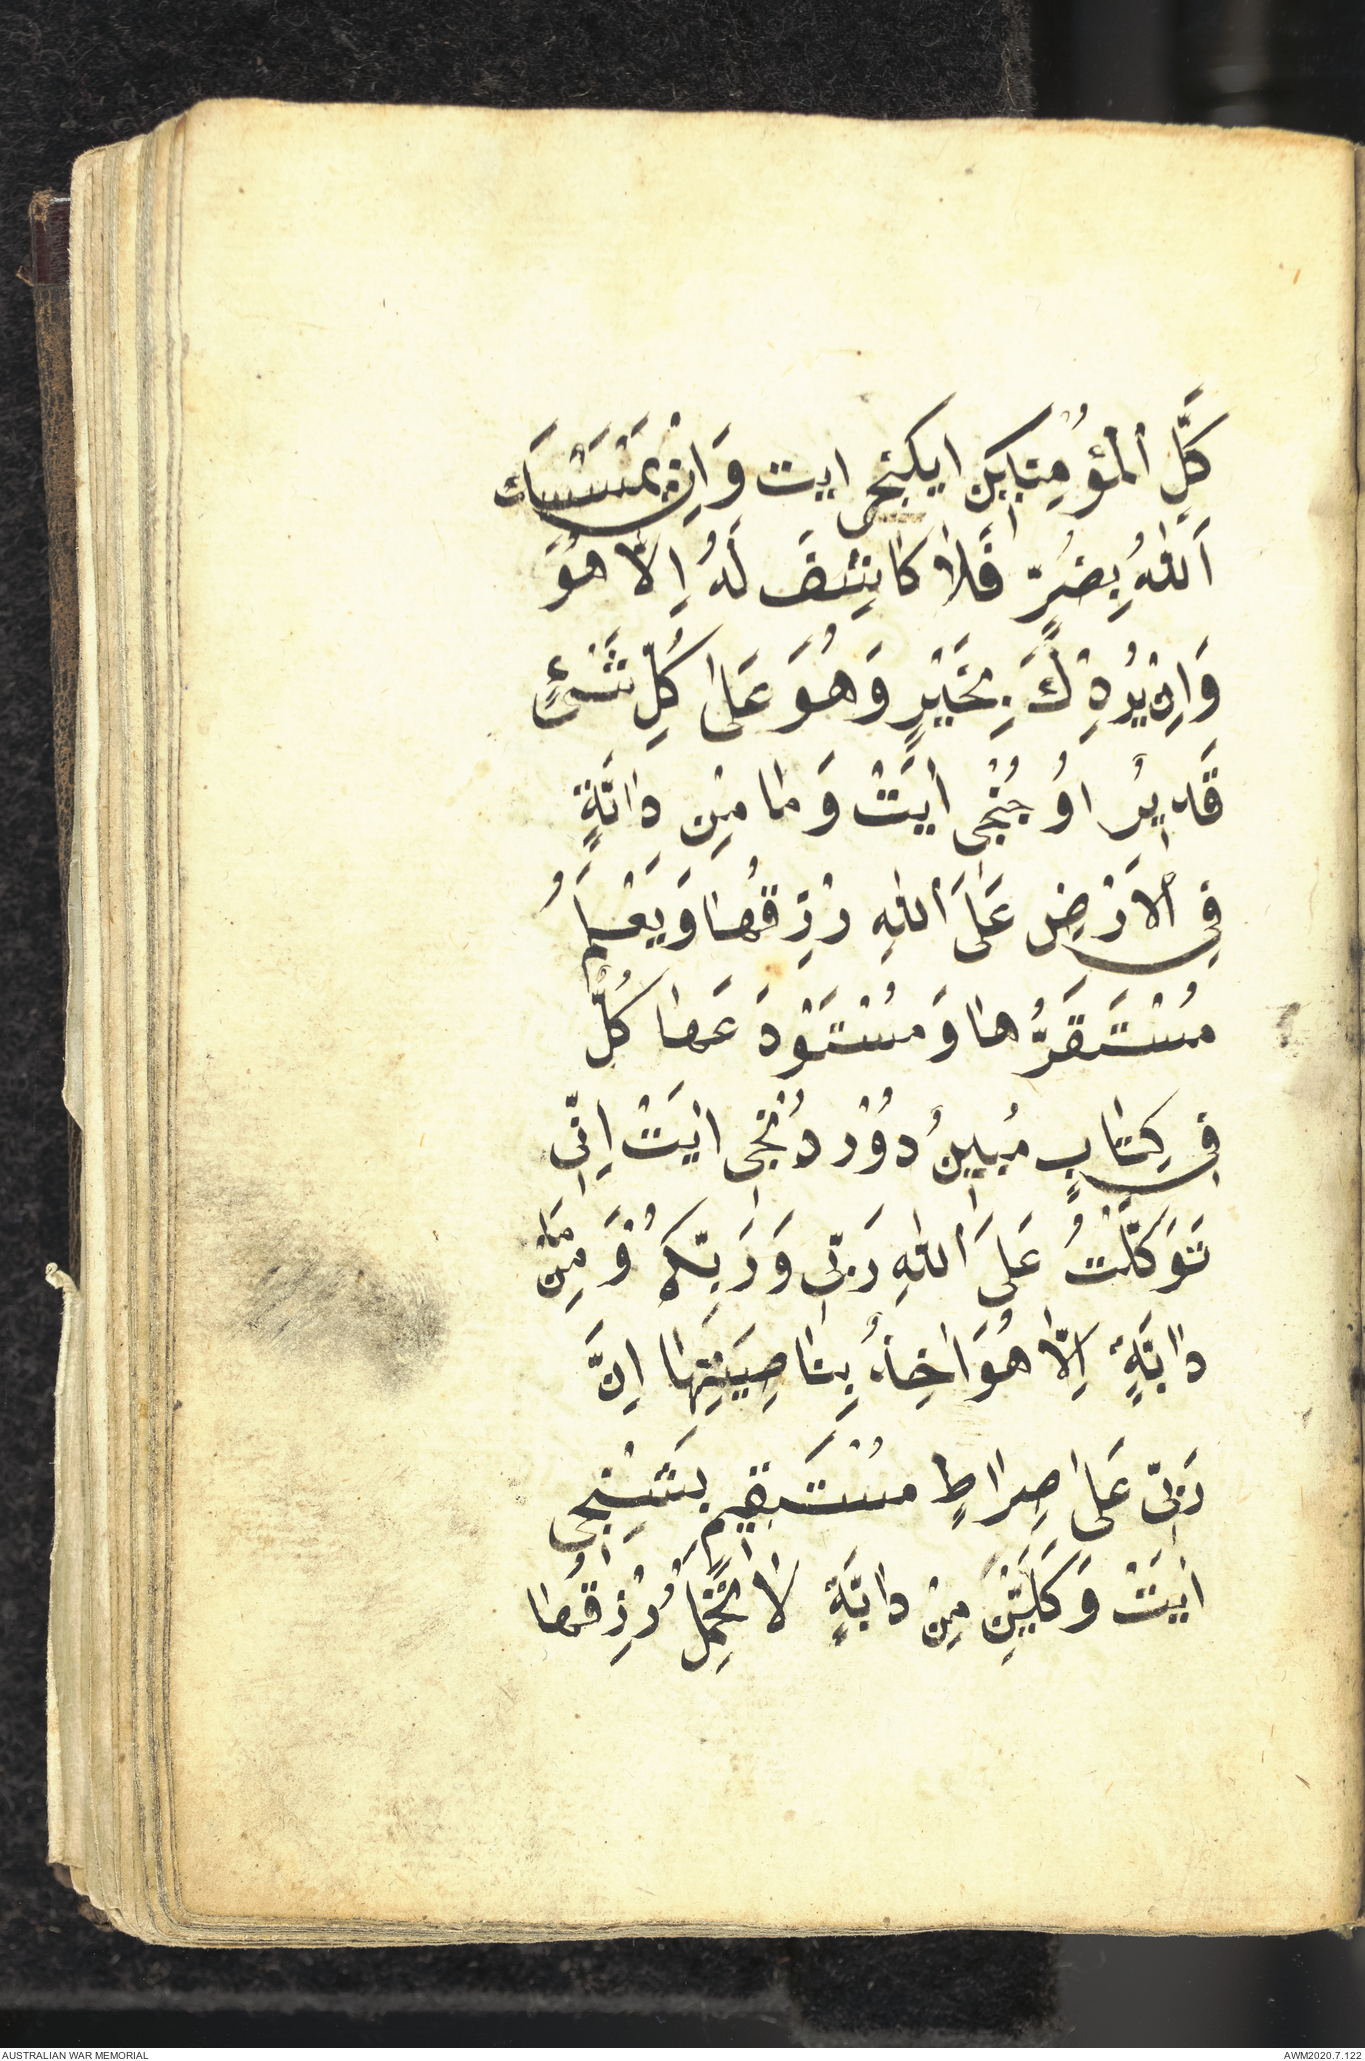 كَّلِ الْمُؤْمِنِينَ ايكنجى ايت وَاِنْ يَمْسَسْكَ
اَللّٰهُ بِضُرٍّ فَلاٰ كَاشِفَ لَهُ اِلاّٰ هُوَ
وَاِنْ يُرِدْكَ بِخَيْرٍ وَهُوَ عَلىٰ كُلِّ شَئٍْ
قَدِيرُ اوُجُنْجِى اٰيَتْ وَمٰا مِنْ دٰابَّةٍ
فِى الْاَرْضِ عَلَى اَللّٰهِ رِزْقُهٰا وَيَعْلَمُ
مُسْتَقَرُّهٰا وَمُسْتَوْدَعَهٰا كُلٌّ
فِى كِتٰابٍ مُبِينُ دُوْرْدُنْجِى اٰيَتْ اِنّٖى
تَوَكَّلْتُ عَلَى اَللّٰهِ رَبّٖى وَرَبِّكُمْ وَمٰا مِنْ
دٰابَّةٍ اِلاّٰ هُوَ اٰخِذُ بِنٰاصِيَتِهٰا اِنَّ
رَبّٖى عَلىٰ صِرٰاطٍ مُسْتَقٖيمٍ بَشِنْجِى
اٰيَتْ وَكَاَيِّنْ مِنْ دٰابَّةٍ لاٰ تَحْمِلُ رِزْقُهٰا
AUSTRALIAN WAR MEMORIAL
AWM2020.7.122